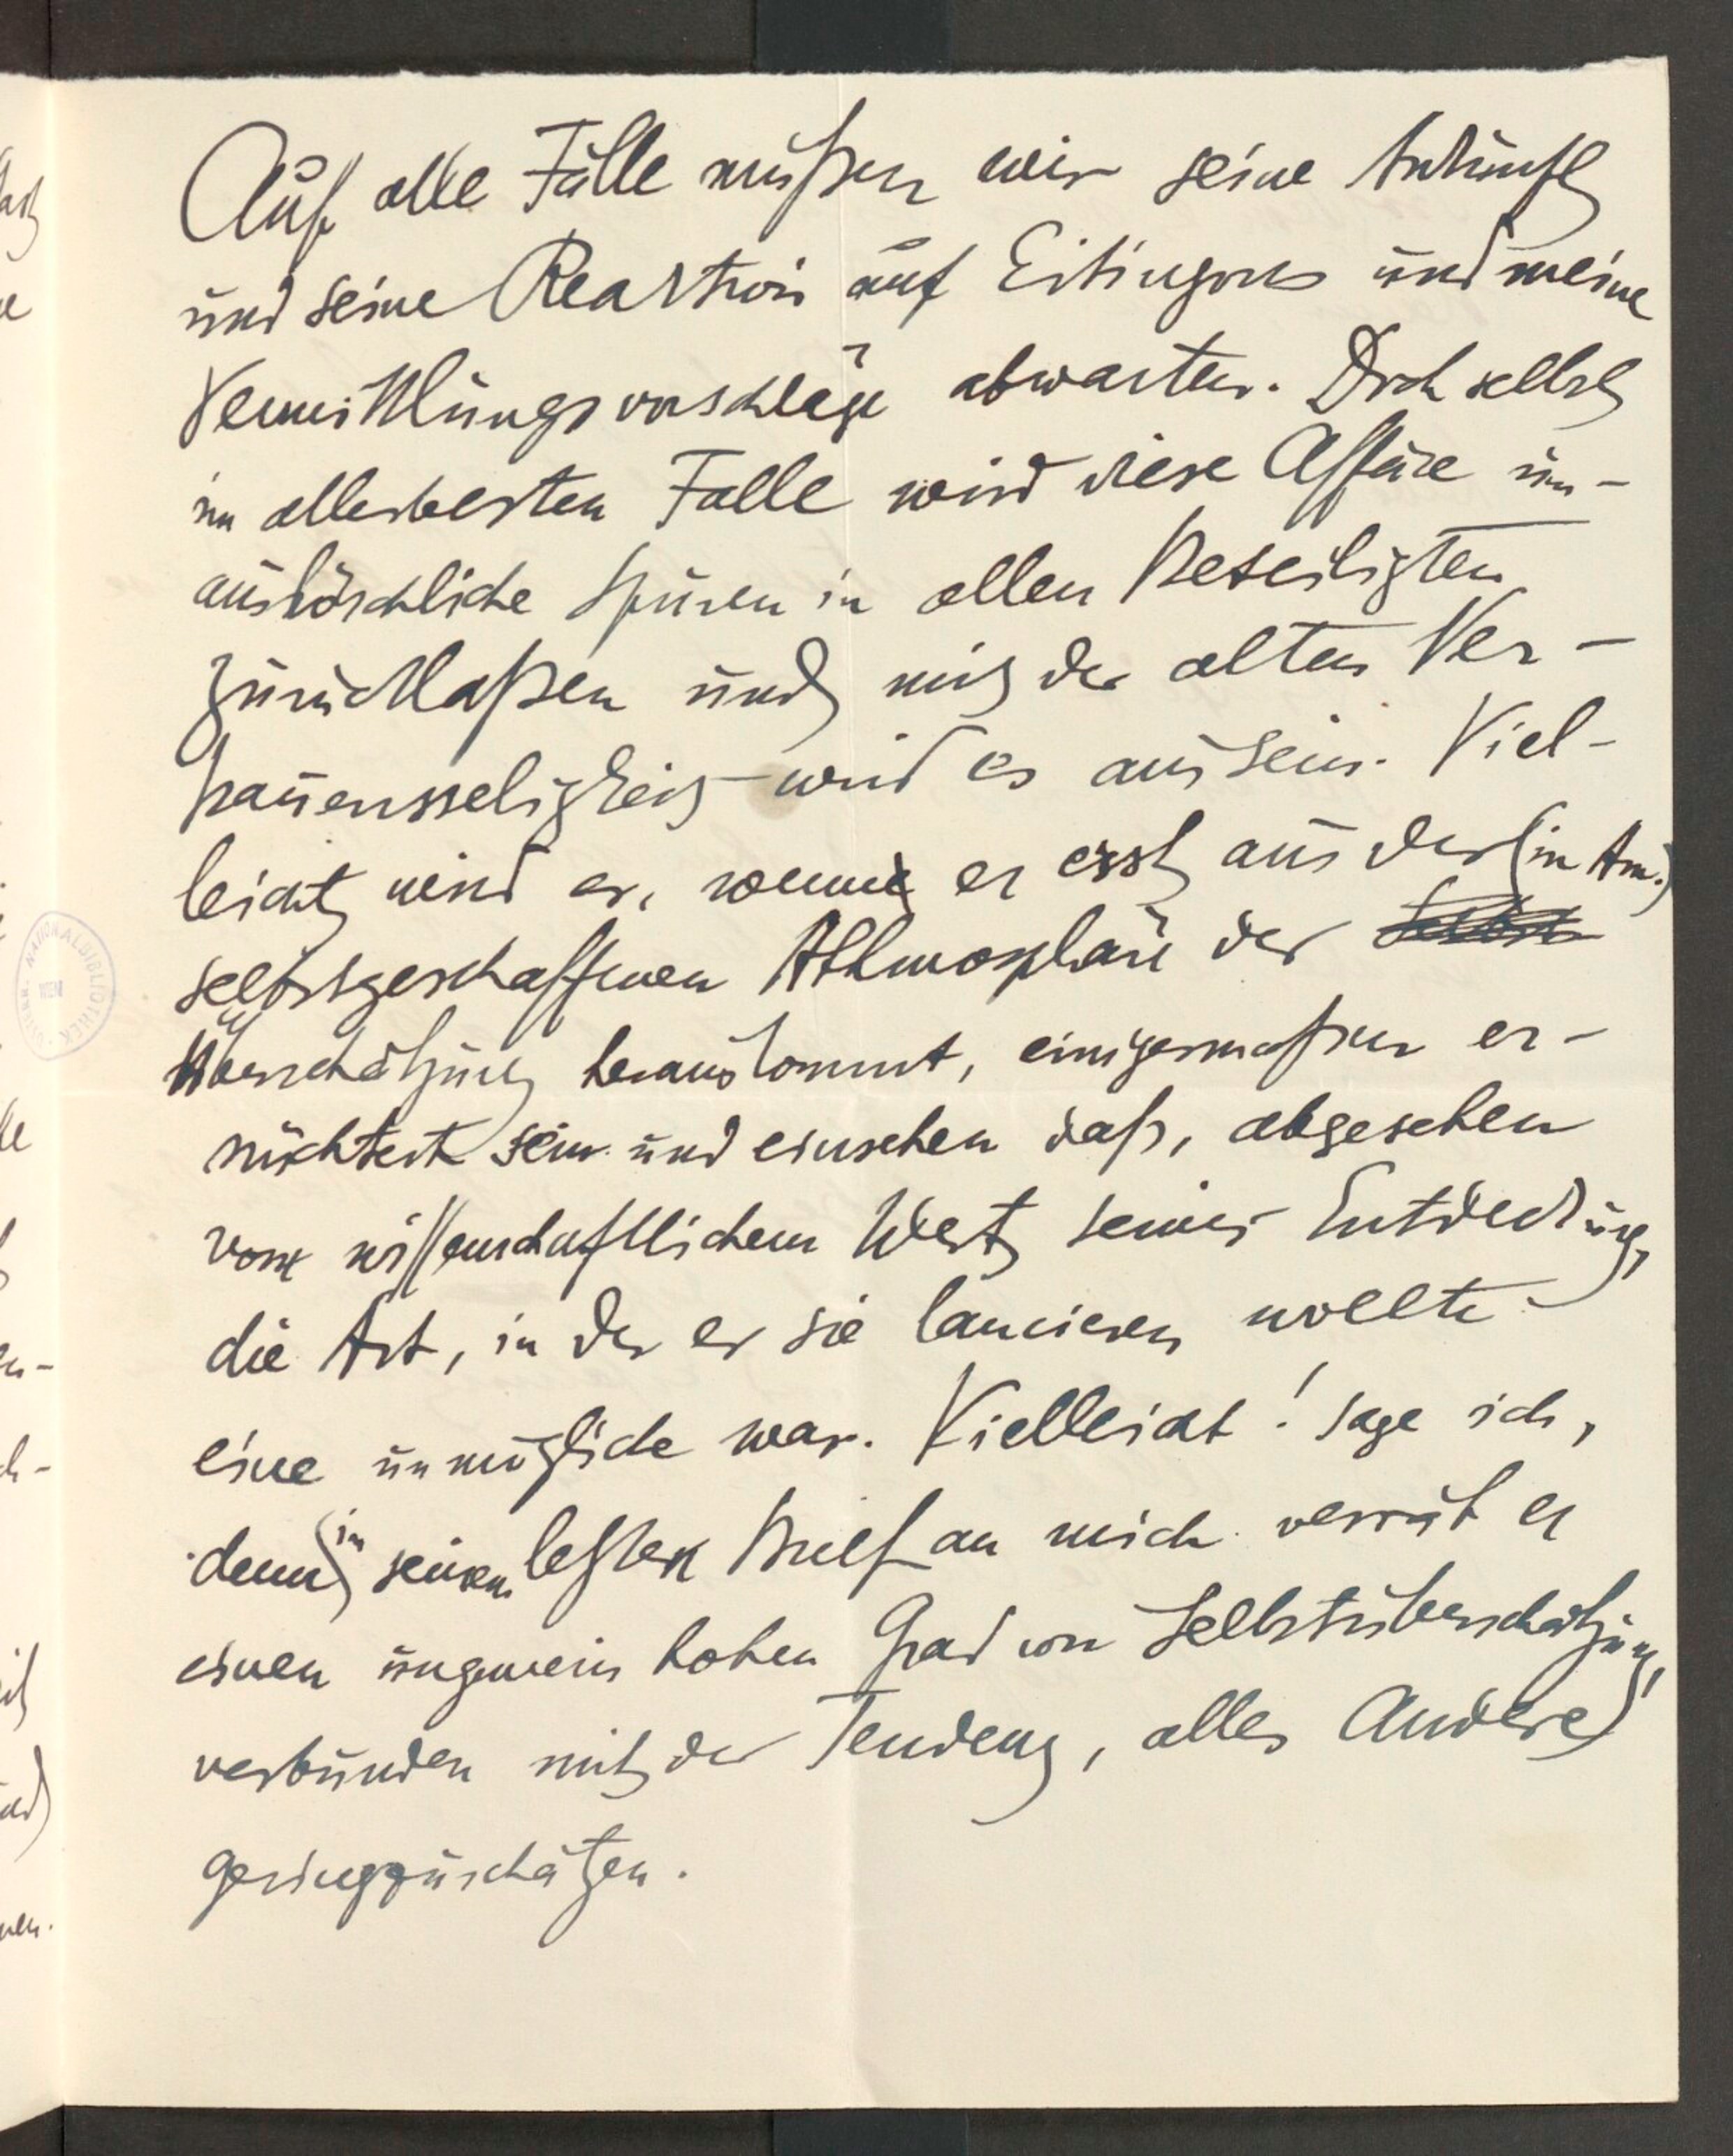 Auf alle Fälle müßen wir seine Ankunft
und seine Reaktion auf Eitingons und meine
Vermittlungsvorschläge abwarten. Doch selbst
im allerbesten Falle wird diese Affäre un-
auslöschliche Spuren in allen Beteiligten
zurücklaßen und mit der alten Ver-
trauensseligkeit wird es aus sein. Viel-
leicht wird er, wenn er erst aus der (in Am.)
selbstgeschaffenen Athmosphäre der
Überschätzung herauskommt, einigermaßen er-
nüchtert sein und einsehen daß, abgesehen
vom wissenschaftlichem Wert seiner Entdeckung,
die Art, in der er sie lancieren wollte
eine unmögliche war. Vielleicht! sage ich,
denn in seinem letzten Brief an mich verrät er
einen ungemein hohen Grad von Selbstüberschätzung,
verbunden mit der Tendenz, alles Andere
geringzuschätzen.
NATIONALBIBLIOTHEK
WIEN